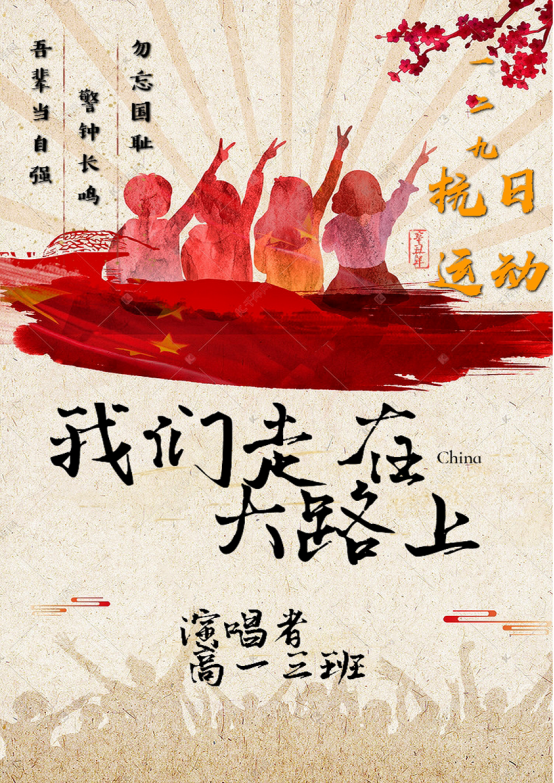 勿忘国耻
警钟长鸣
吾辈当自强
一二九
抗日
运动
辛丑年
我们走在
China
大路上
演唱者
高一三班